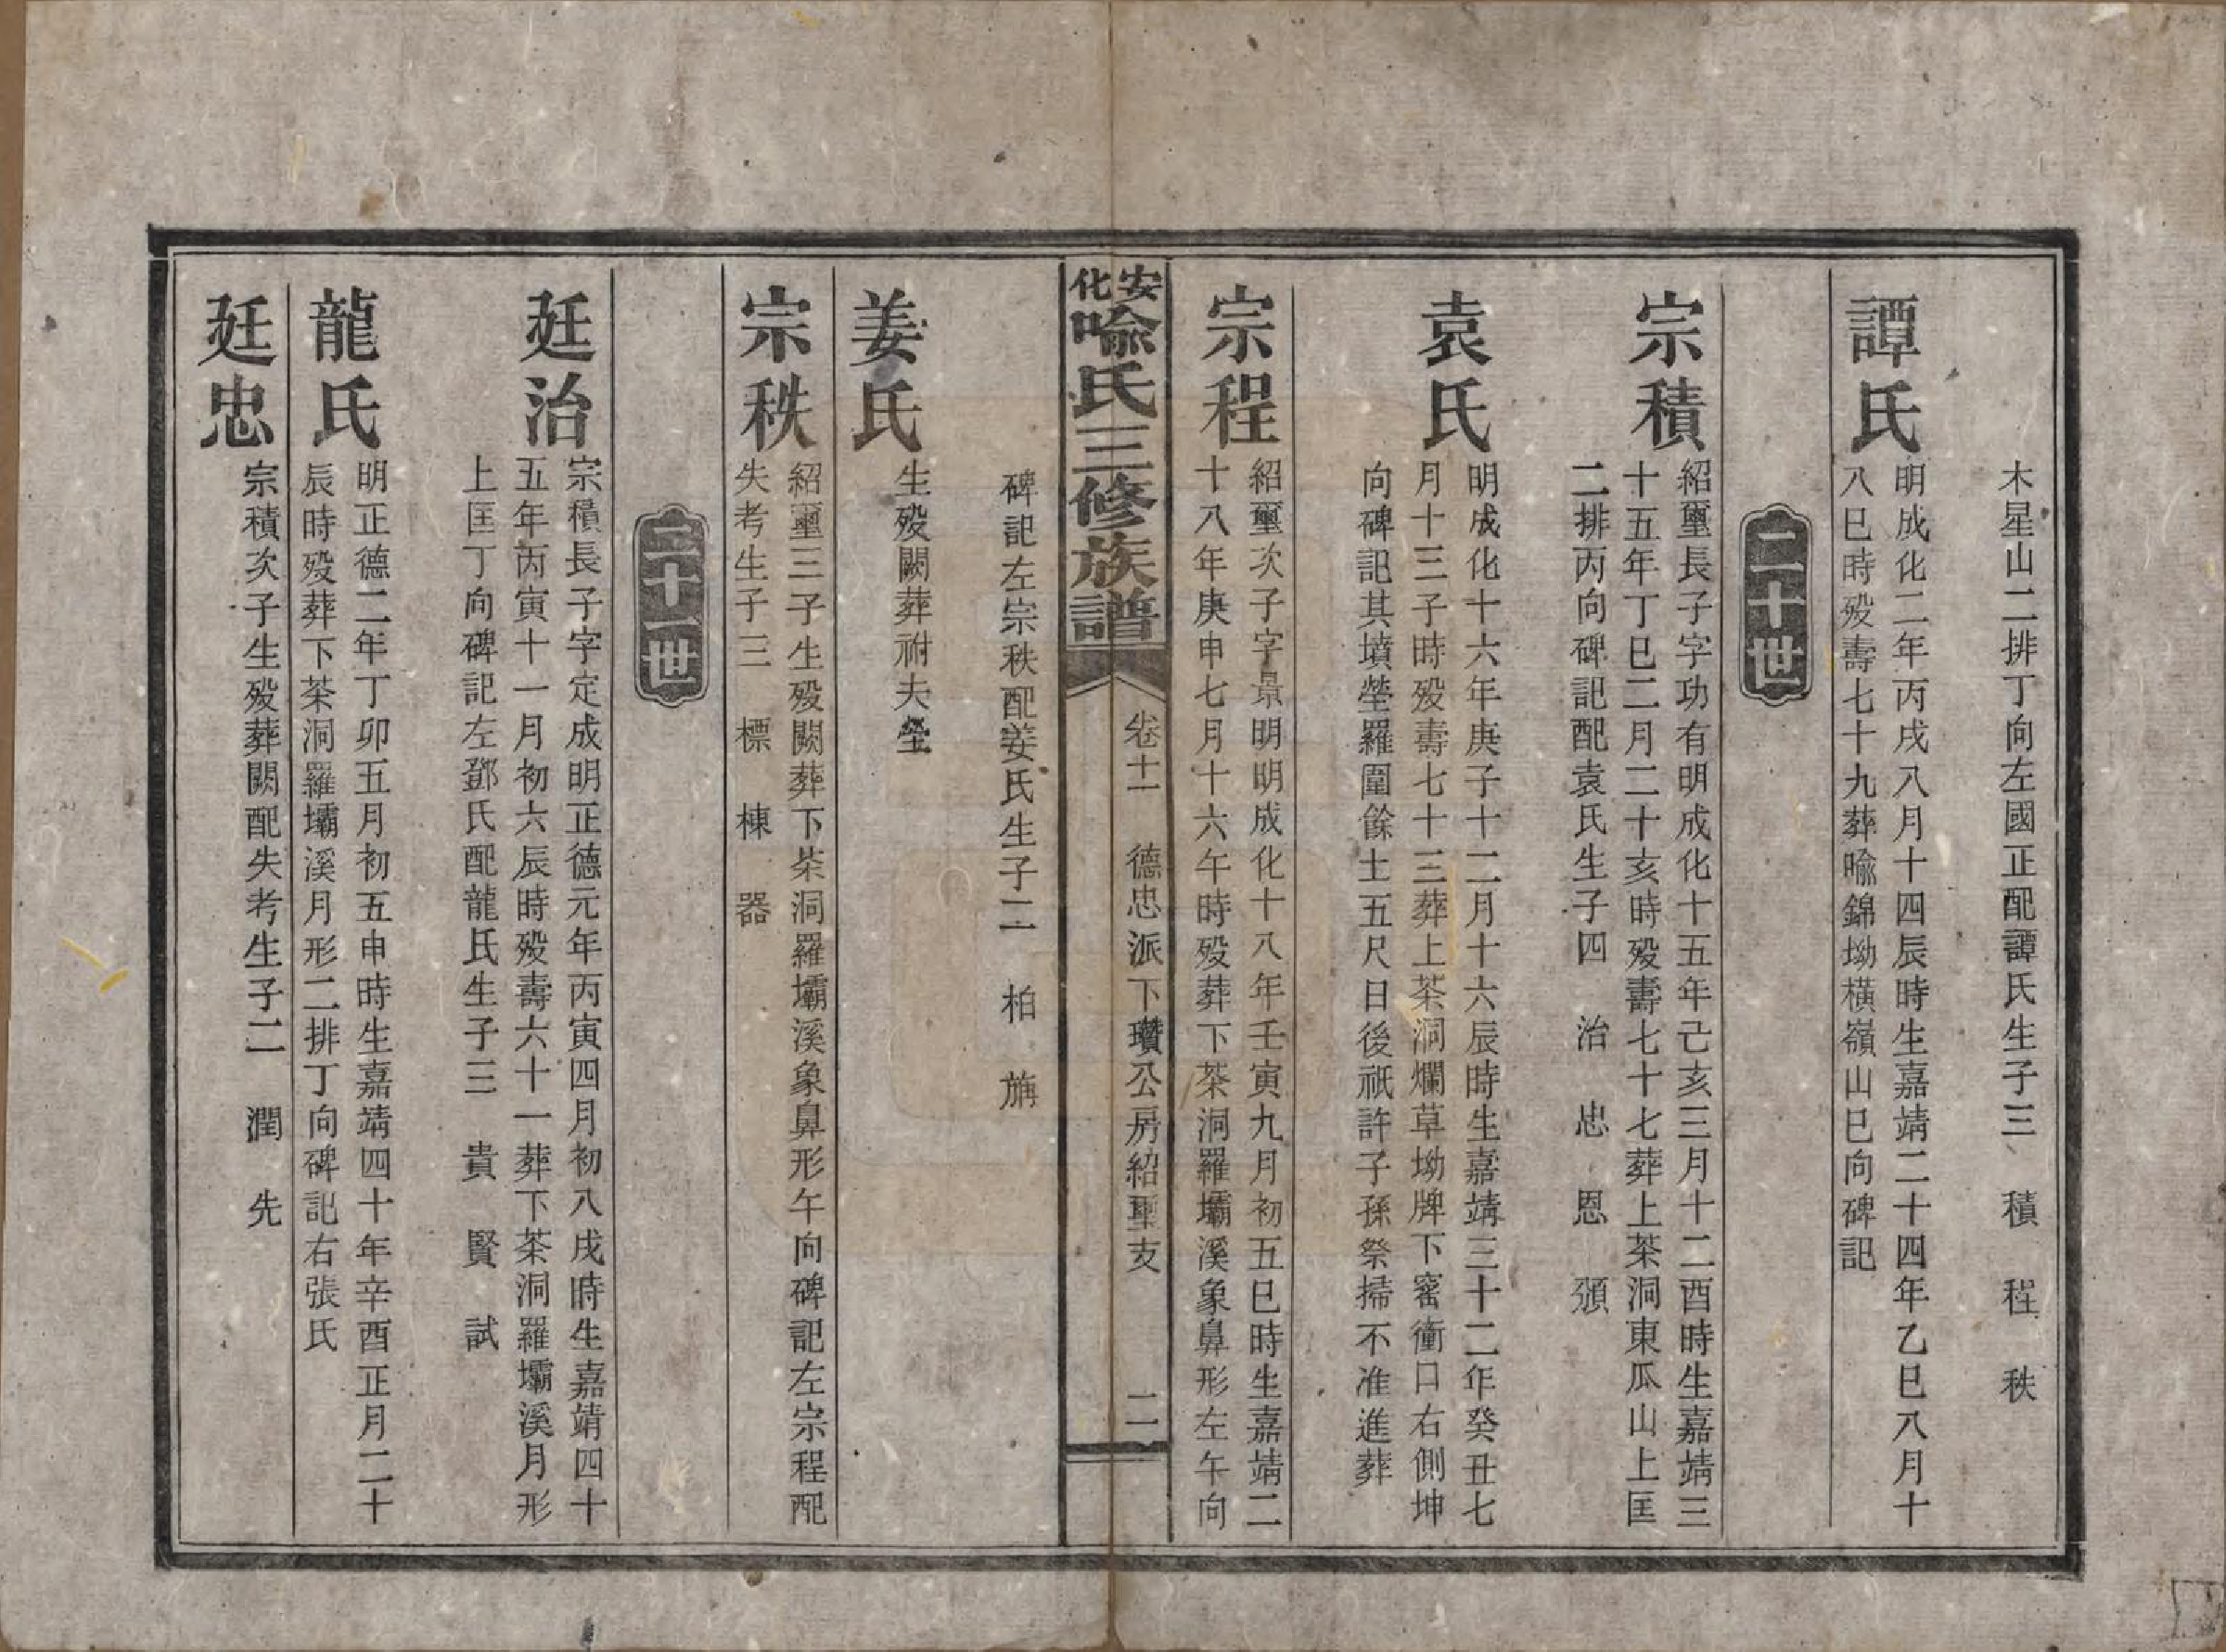 木星山二排丁向左國正配譚氏生子三　積　程　秩
譚氏
明成化二年丙戌八月十四辰時生嘉靖二十四年乙巳八月十
八巳時殁壽七十九葬喻錦坳橫嶺山巳向碑記
二十世
宗積
紹璽長子字功有明成化十五年己亥三月十二酉時生嘉靖三
十五年丁巳二月二十亥時殁壽七十七葬上茶洞東瓜山上匡
二排丙向碑記配袁氏生子四　治　忠　恩　頒
袁氏
明成化十六年庚子十二月十六辰時生嘉靖三十二年癸丑七
月十三子時殁壽七十三葬上茶洞爛草坳牌下窰衝口右側坤
向碑記其墳塋羅圍餘土五尺日後祇許子孫祭掃不准進葬
宗程
紹璽次子字景明明成化十八年壬寅九月初五巳時生嘉靖二
十八年庚申七月十六午時殁葬下茶洞羅壩溪象鼻形左午向
安化喻氏三修族譜
卷十一　德忠派下瓚公房紹璽支　二
碑記左宗秩配姜氏生子二　柏　旃
姜氏
生殁闕葬祔夫塋
宗秩
紹璽三子生殁闕葬下茶洞羅壩溪象鼻形午向碑記左宗程配
失考生子三　標　棟　器
二十一世
廷治
宗積長子字定成明正德元年丙寅四月初八戌時生嘉靖四十
五年丙寅十一月初六辰時殁壽六十一葬下茶洞羅壩溪月形
上匡丁向碑記左鄧氏配龍氏生子三　貴　賢　試
龍氏
明正德二年丁卯五月初五申時生嘉靖四十年辛酉正月二十
辰時殁葬下茶洞羅壩溪月形二排丁向碑記右張氏
廷忠
宗積次子生殁葬闕配失考生子二　潤　先